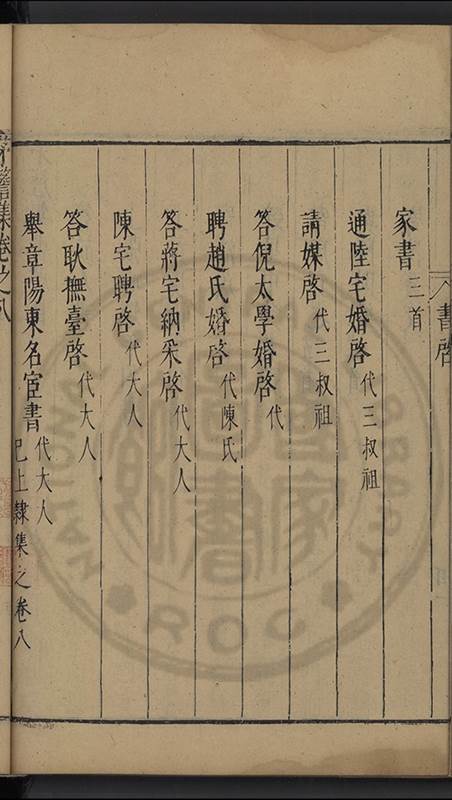 書啓
家書三首
通陸宅婚啓代三叔祖
請媒啓代三叔祖
答倪太學婚啓代
聘趙氏婚啓代陳氏
答蔣宅納采啓代大人
陳宅聘啓代大人
答耿撫臺啓代大人
舉章陽東名宦書代大人
已上隸集之卷八
集卷之八